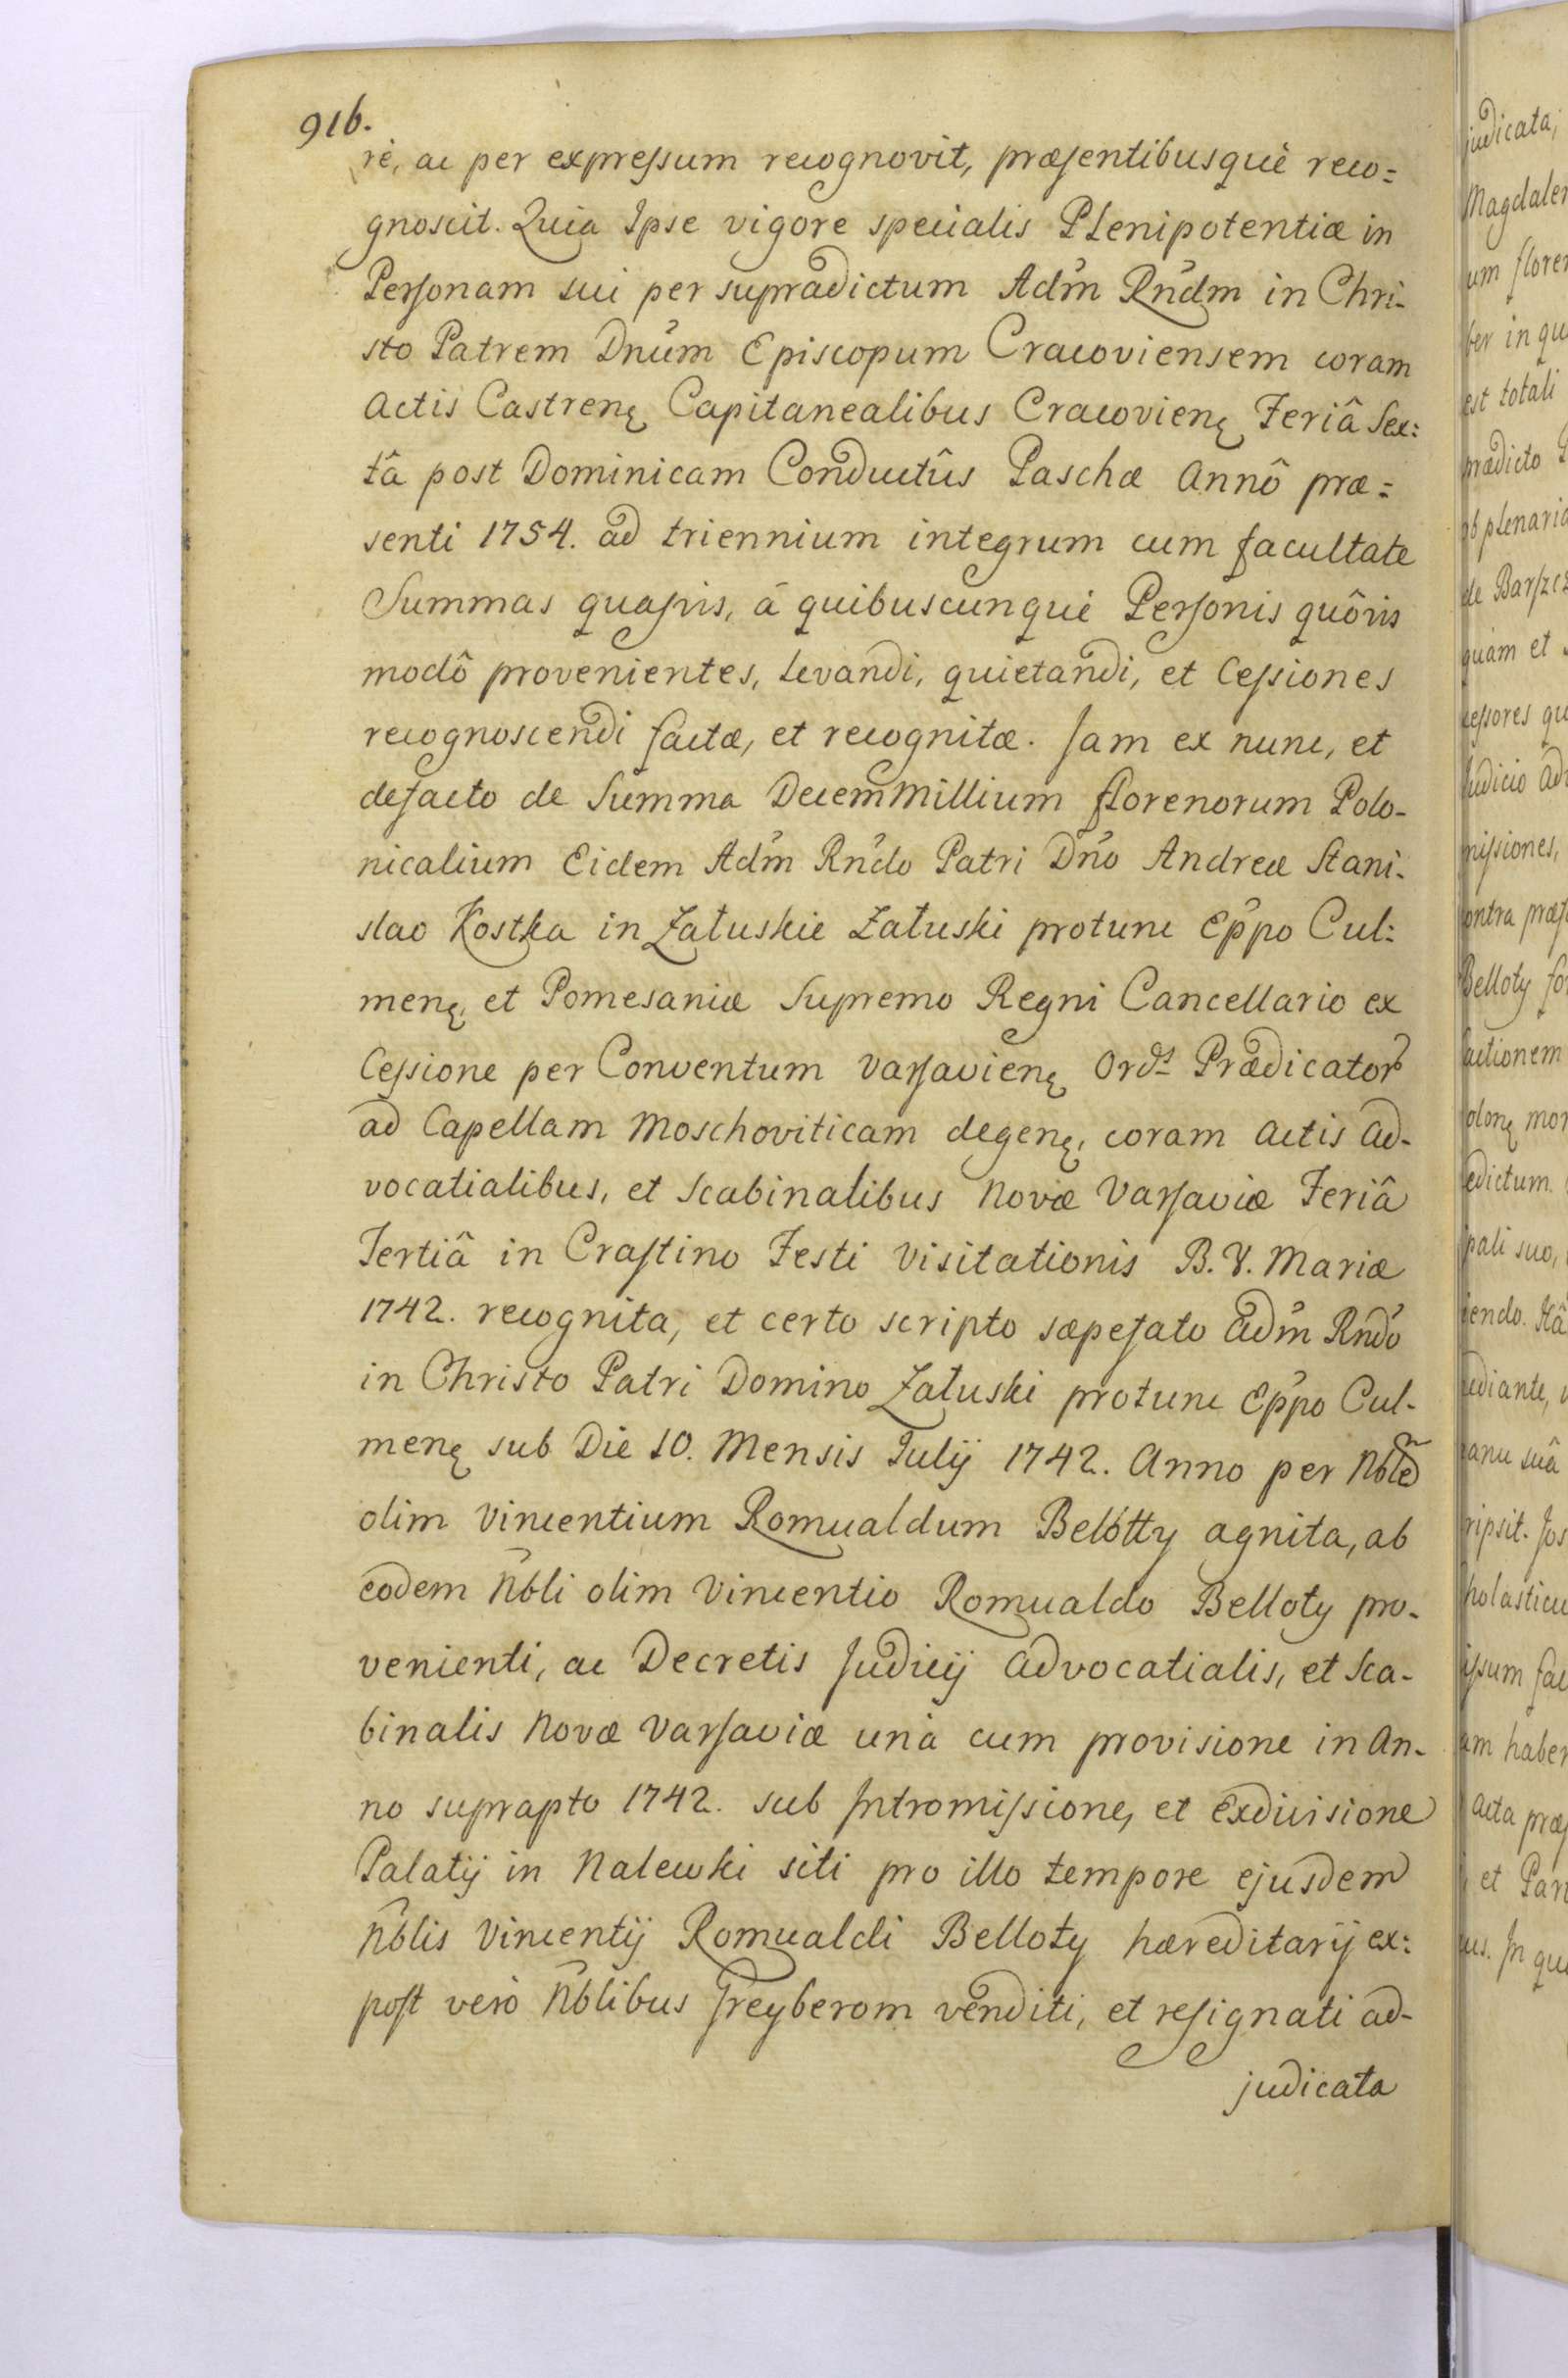 916.
rè, ac per expressum recognovit, præsentibusquè reco=
gnoscit. Quia Ipse vigore specialis Plenipotentiæ in
Personam sui per supradictum Adm̃ Rñdm in Chri-
sto Patrem Dnũm Episcopum Cracoviensem coram
Actis Castrenę Capitanealibus Cracovienę Feriâ Sex:
tâ post Dominicam Conductûs Paschæ Annô præ=
senti 1754. ad triennium integrum cum facultate
Summas quasvis, á quibuscunquè Personis quôvis
modô provenientes, Levandi, quietandi, et Cessiones
recognoscendi factæ, et recognitæ. Jam ex nunc, et
defacto de Summa Decem Millium florenorum Polo-
nicalium Eidem Adm̃ Rñdo Patri Dño Andreæ Stani-
slao Kostka in Załuskie Załuski protunc Epp̃o Cul:
menę, et Pomesaniæ Supremo Regni Cancellario ex
Cessione per Conventum Varsavienę Ordˢ Prædicator̃
ad Capellam Moschoviticam degenę, coram Actis Ad-
vocatialibus, et Scabinalibus Novæ Varsaviæ Feriâ
Tertiâ in Crastino Festi Visitationis B. V. Mariæ
1742. recognita, et certo scripto sæpefato Adm̃ Rñdo
in Christo Patri Domino Załuski protunc Epp̃o Cul-
menę sub Die 10. Mensis Julij 1742. Anno per Nb̃lẽ
olim Vincentium Romualdum Belótty agnita, ab
eodem Nb̃li olim Vincentio Romualdo Belloty pro-
venienti, ac Decretis Judicij Advocatialis, et Sca-
binalis Novæ Varsaviæ unà cum provisione in An-
no suprapto 1742. sub Intromissione, et Exdivisione
Palatij in Nalewki siti pro illo tempore ejusdem
Nb̃lis Vincentij Romualdi Belloty hæreditarij ex:
post verò Nb̃libus Freyberom venditi, et resignati ad-
judicata